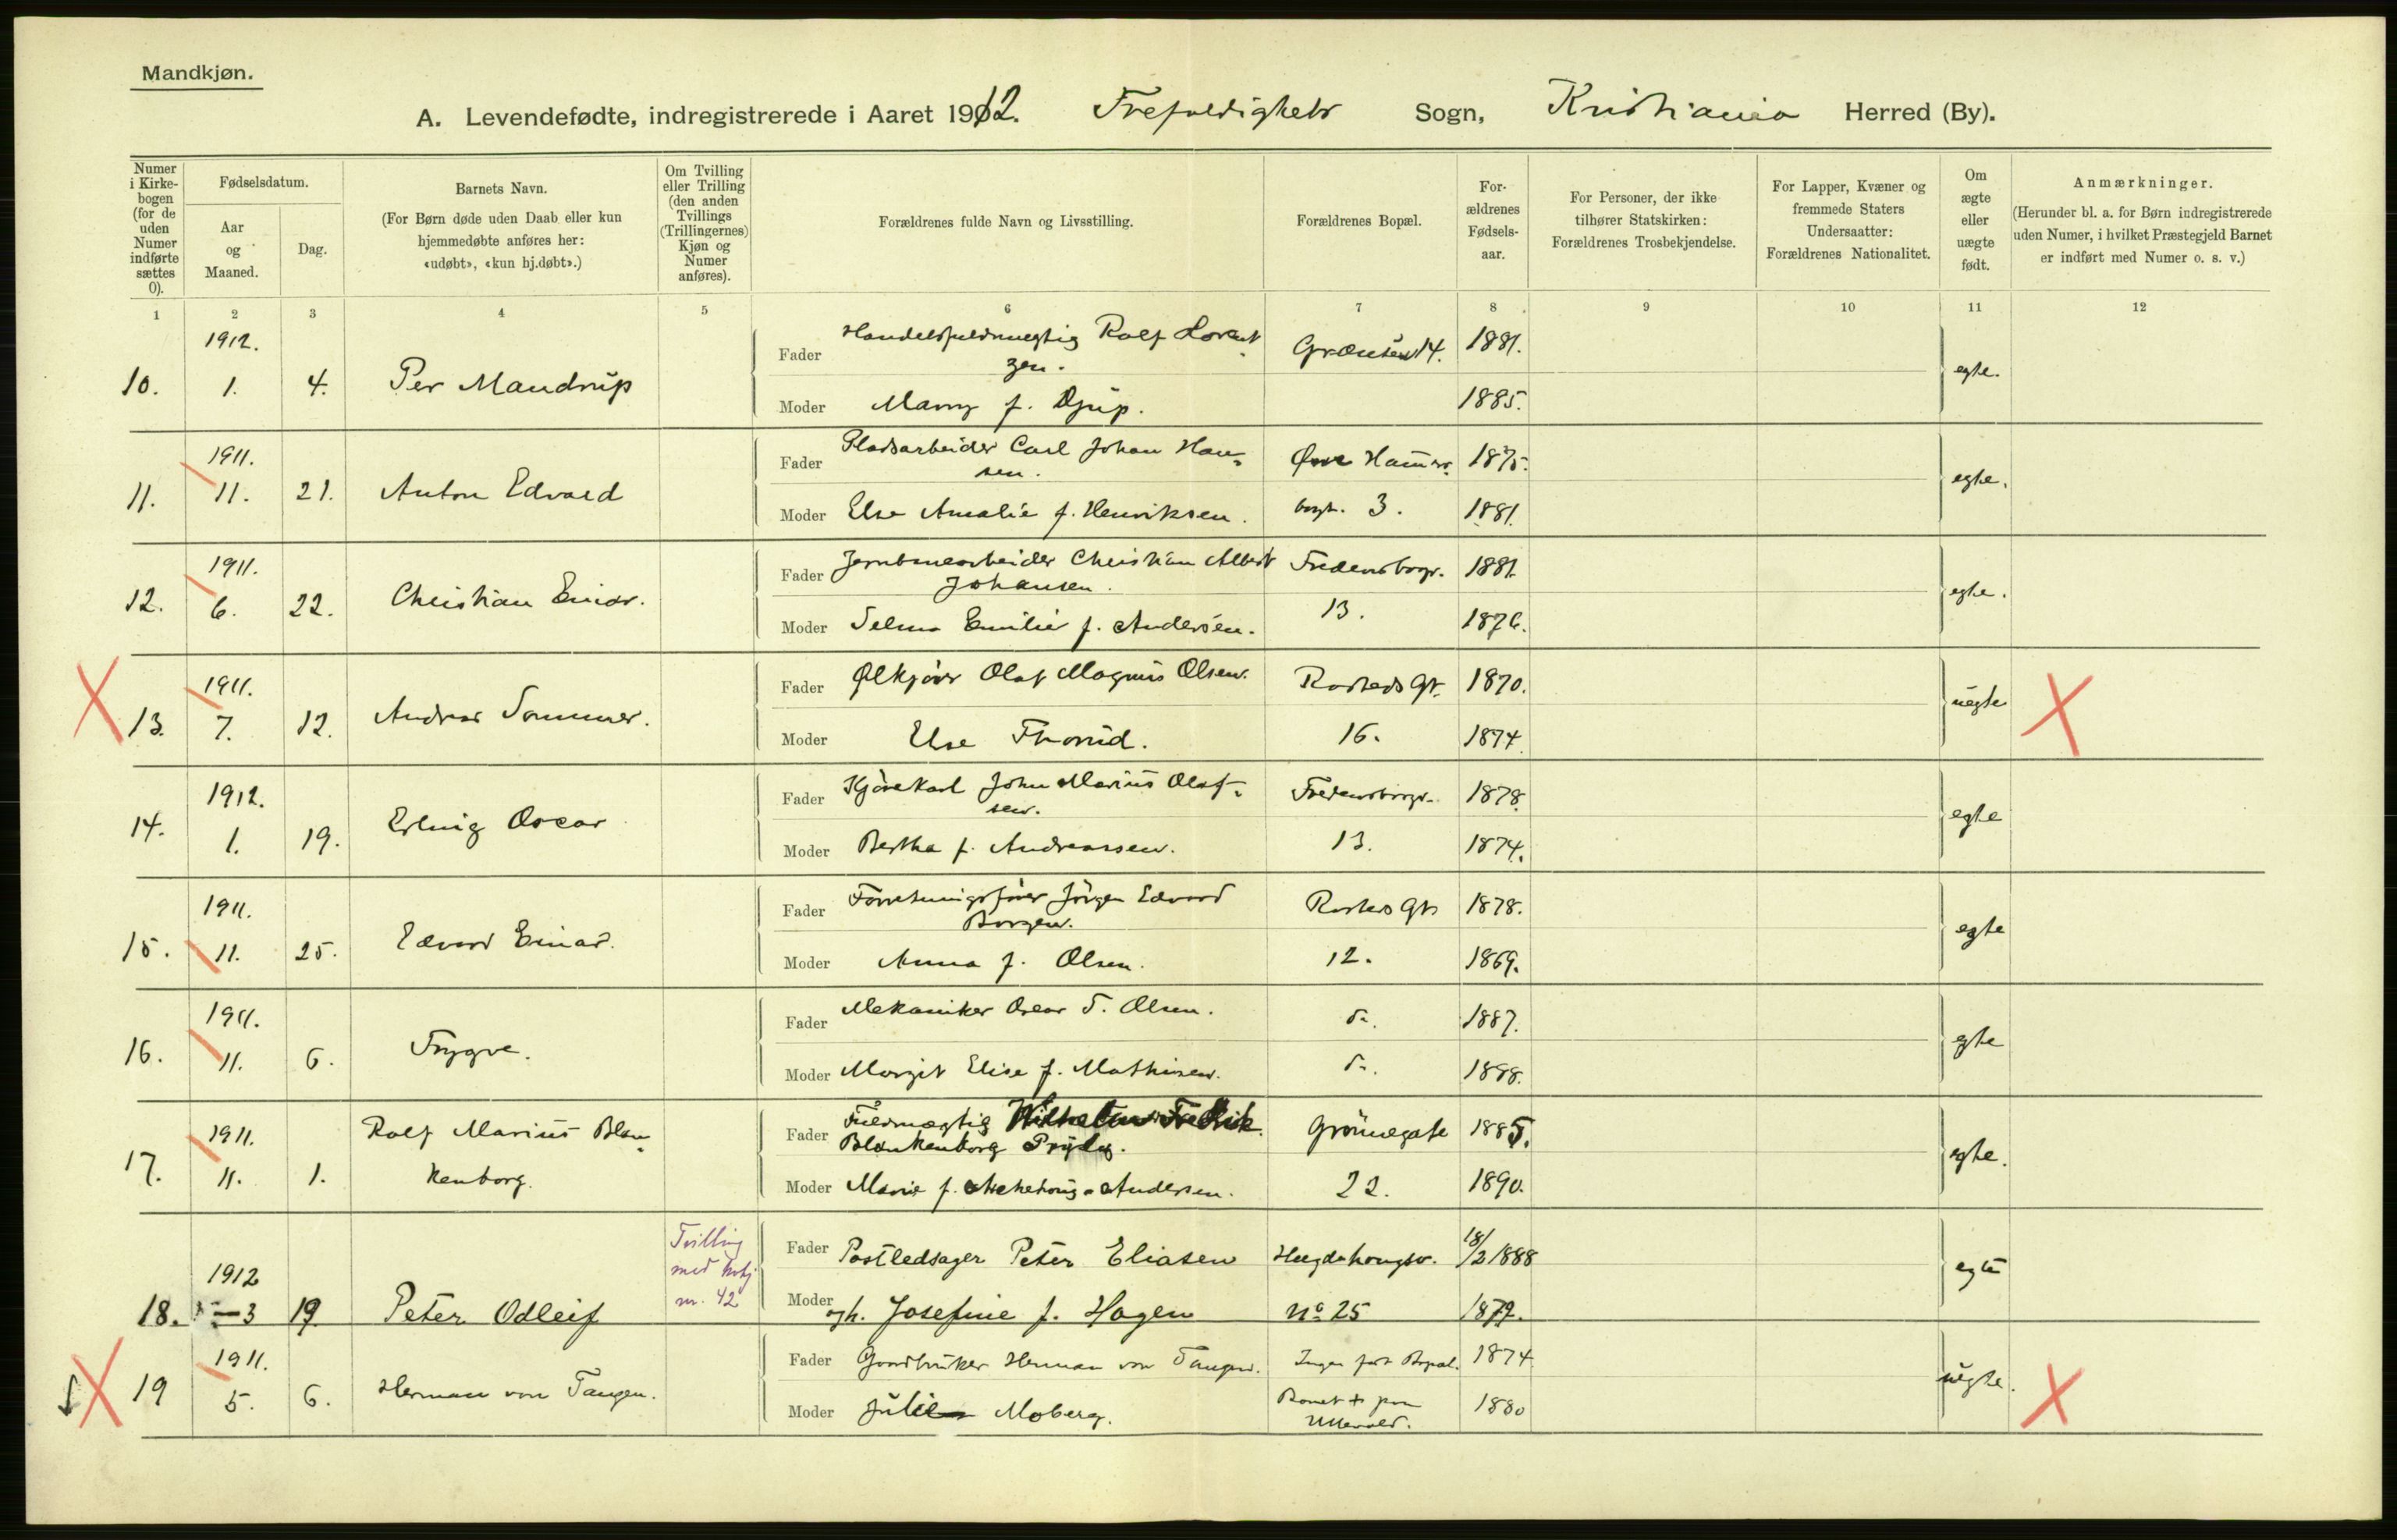 Mandkjøn.
A. Levendefødte, indregistrerede i Aaret 1912. Trefoldigheds Sogn, Kristiania Herred (By).
Numer i Kirke-bogen (for de uden Numer indførte sættes 0).
Fødselsdatum.
Aar og Maaned.
Dag.
Barnets Navn.
(For Børn døde uden Daab eller kun hjemmedøbte anføres her: «udøbt», «kun hj.døbt».)
Om Tvilling eller Trilling (den anden Tvillings (Trillingernes) Kjøn og Numer anføres).
Forældrenes fulde Navn og Livsstilling.
Forældrenes Bopæl.
For-ældrenes Fødsels-aar.
For Personer, der ikke tilhører Statskirken: Forældrenes Trosbekjendelse.
For Lapper, Kvæner og fremmede Staters Undersaatter: Forældrenes Nationalitet.
Om ægte eller uægte født.
Anmærkninger.
(Herunder bl. a. for Børn indregistrerede uden Numer, i hvilket Præstegjeld Barnet er indført med Numer o. s. v.)
1 2 3 4 5 6 7 8 9 10 11 12
1912.
10. 1. 4. Per Mandrup
Fader Handelsfuldmægtig Rolf Lorent
zen. Grænsen 14. 1881.
Moder Marry f. Djup. 1885.
egte.
1911.
11. 11. 21. Anton Edvard
Fader Pladsarbeider Carl Johan Han-
sen. Øvre Hammer 1875.
Moder Else Amalie f. Henriksen. borgt. 3. 1881.
egte.
1911.
12. 6. 22. Christian Einar.
Fader Jernbanearbeider Christian Albert
Johansen. Fredensborgv. 1881.
Moder Selma Emilie f. Andersen. 13. 1876.
egte.
1911.
13. 7. 12. Andreas Sommer.
Fader Ølkjører Olaf Magnus Olsen. Rosteds Gt. 1870.
Moder Else 16. 1874.
uegte
1912.
14. 1. 19. Erling Oscar
Fader Kjørekarl John Marius Olaf-
sen. Fredensborgv. 1878.
Moder Bertha f. Andreassen. 13. 1874.
egte
1911.
15. 11. 25. Edvard Einar.
Fader Forretningsfører Jörgen Edvard
Borgen. Rosteds Gt. 1878.
Moder Anna f. Olsen. 12. 1869.
egte
1911.
16. 11. 6. Trygve.
Fader Mekaniker Oscar T. Olsen. d-. 1887.
Moder Margit Elise f. Mathisen. d-. 1888.
egte
1911.
17. 11. 1. Rolf Marius Blan
kenborg.
Fader Fuldmægtig Wilhelm Fredrik
Blankenborg Prydz. Grönnegate 1885.
Moder Marie f. Andersen. 22. 1890.
egte.
Tvilling
med kvkj
nr. 42
1912
18. 3 19. Peter Odleif
Fader Postledsager Peter Eliasen Hegdehougsv. 18/2 1888
Moder Josefine f. Hagen No 25 1879.
egte
1911.
19 5. 6. Herman von Tangen.
Fader Gaardbruker Herman von Tangen. Ingen fast Bopæl. 1874
Moder Julie Moberg. Barnet + paa
Ullevold. 1880
uegte.